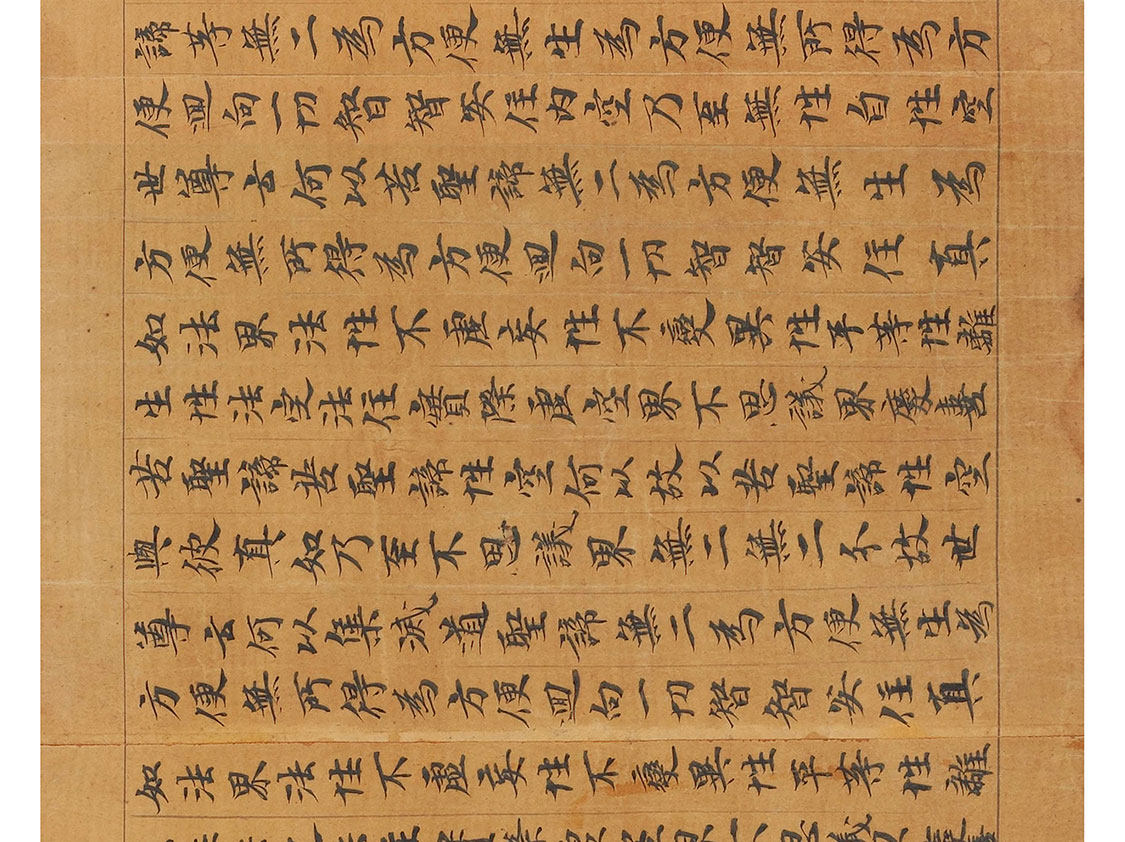 諦等無二為方便無生為方便無所得為方
便迴向一切智智安住內空乃至無性自性空
世尊云何以苦聖諦無二為方便無生為
方便無所得為方便迴向一切智智安住真
如法界法性不虛妄性不變異性平等性離
生性法定法住實際虛空界不思議界慶喜
苦聖諦苦聖諦性空何以故以苦聖諦性空
與彼真如乃至不思議界無二無二分故世
尊云何以集滅道聖諦無二為方便無生為
方便無所得為方便迴向一切智智安住真
如法界法性不虛妄性不變異性平等性離